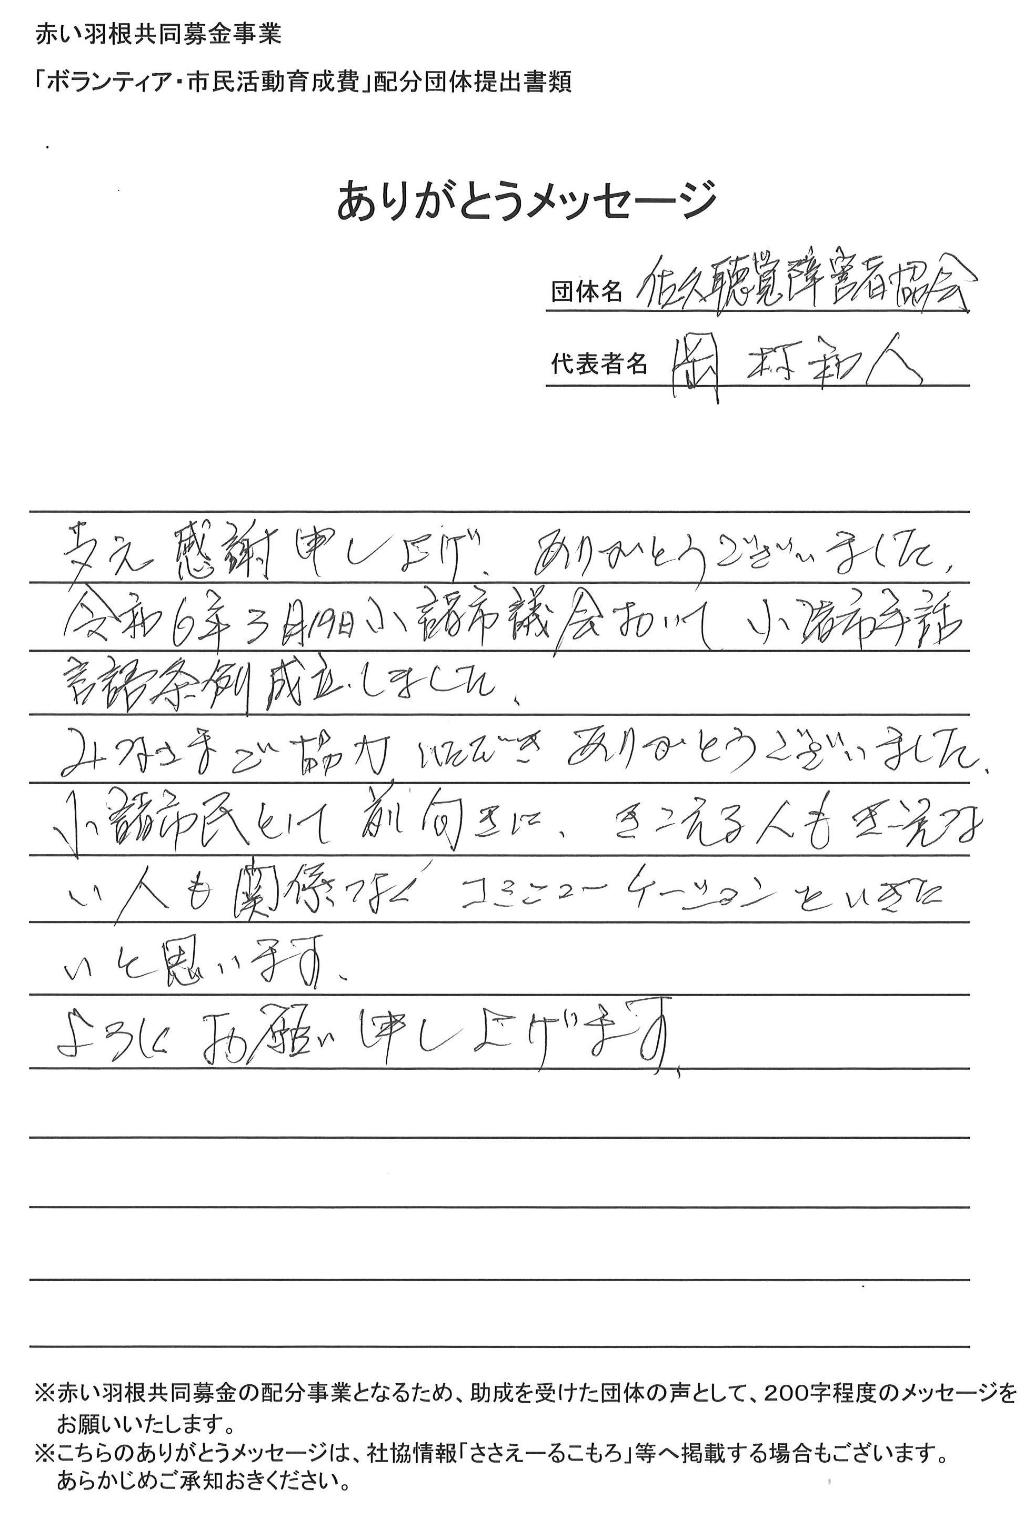 赤い羽根共同募金事業
「ボランティア・市民活動育成費」配分団体提出書類
ありがとうメッセージ
団体名 佐久聴覚障害者協会
代表者名 岡村和人
支え感謝申し上げ、ありがとうございました。
令和6年3月19日小諸市議会おいて小諸市手話
言語条例成立しました。
みなさまご協力いただきありがとうございました。
小諸市民として前向きに、きこえる人もきこえな
い人も関係なく コミニューケーションといきた
いと思います。
ように お願い申し上げます。
※赤い羽根共同募金の配分事業となるため、助成を受けた団体の声として、200字程度のメッセージを
お願いいたします。
※こちらのありがとうメッセージは、社協情報「ささえーるこもろ」等へ掲載する場合もございます。
あらかじめご承知おきください。